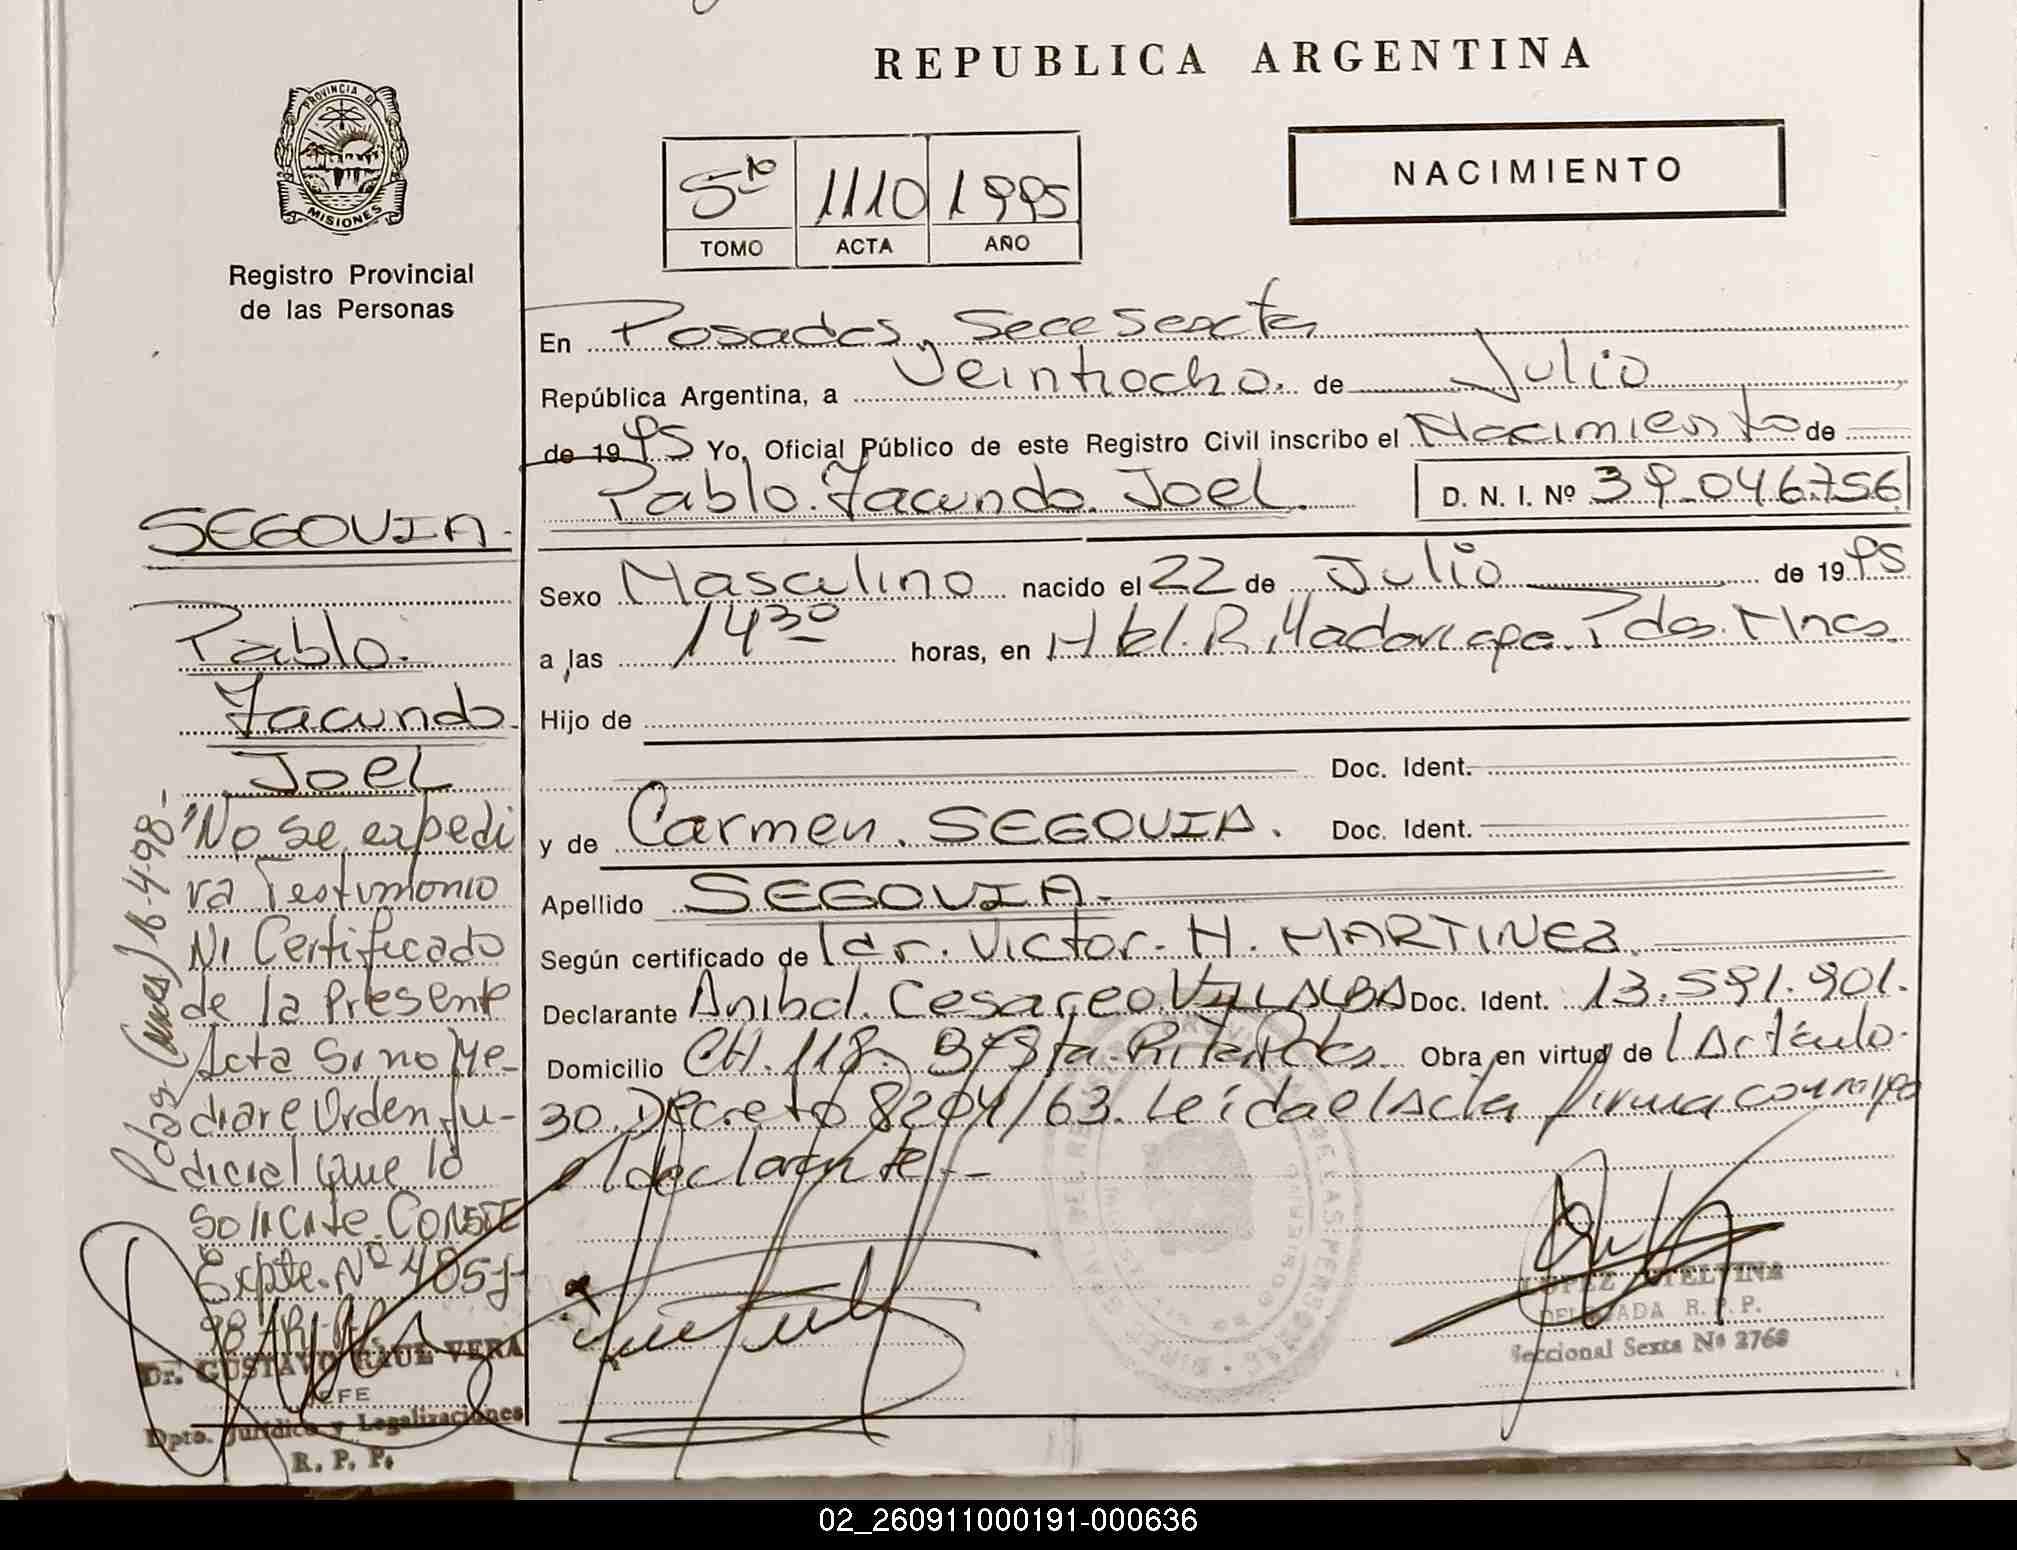 REPUBLICA ARGENTINA
PROVINCIA DE
MISIONES
Registro Provincial
de las Personas
5to 1110 1995
TOMO ACTA AÑO
NACIMIENTO
En Posadas, Secc Sexta
República Argentina, a Veintiocho. de Julio
de 19 95 Yo, Oficial Público de este Registro Civil inscribo el Nacimiento de
Pablo. Facundo. Joel. D. N. I. Nº 39.046.756
Sexo Masculino nacido el 22 de Julio de 19 95
a las 14 30 horas, en Htal. R. Madariaga. Pdas. Mnes
Hijo de
Doc. Ident.
y de Carmen. SEGOVIA. Doc. Ident.
Apellido SEGOVIA.-
Según certificado de l dr. Victor. H. MARTINEZ
Declarante Anibal. Cesareo. VILLALBA Doc. Ident. 13.591.901.
Domicilio CH. 118. Bº Sta. Rita Pdas. Obra en virtud de l Artículo.
30. Decreto 8204/63. Leída el Acta firma conmigo
el declarante.-
SEGOVIA.-
Pablo.
Facundo.
Joel
"No se expedi
ra Testimonio
Ni Certificado
de la Presente
Acta Si no Me-
diare Orden Ju-
dicial que lo
Solicite. CONSTE
Expte. Nº 485-J-
98
Pdas (Mnes) 16-4-98-
Dr. GUSTAVO RAUL VERA
JEFE
Dpto. Jurídico y Legalizaciones
R. P. P.
LOPEZ ETELVINA
DELEGADA R. P. P.
Seccional Sexta Nº 2768
02_260911000191-000636